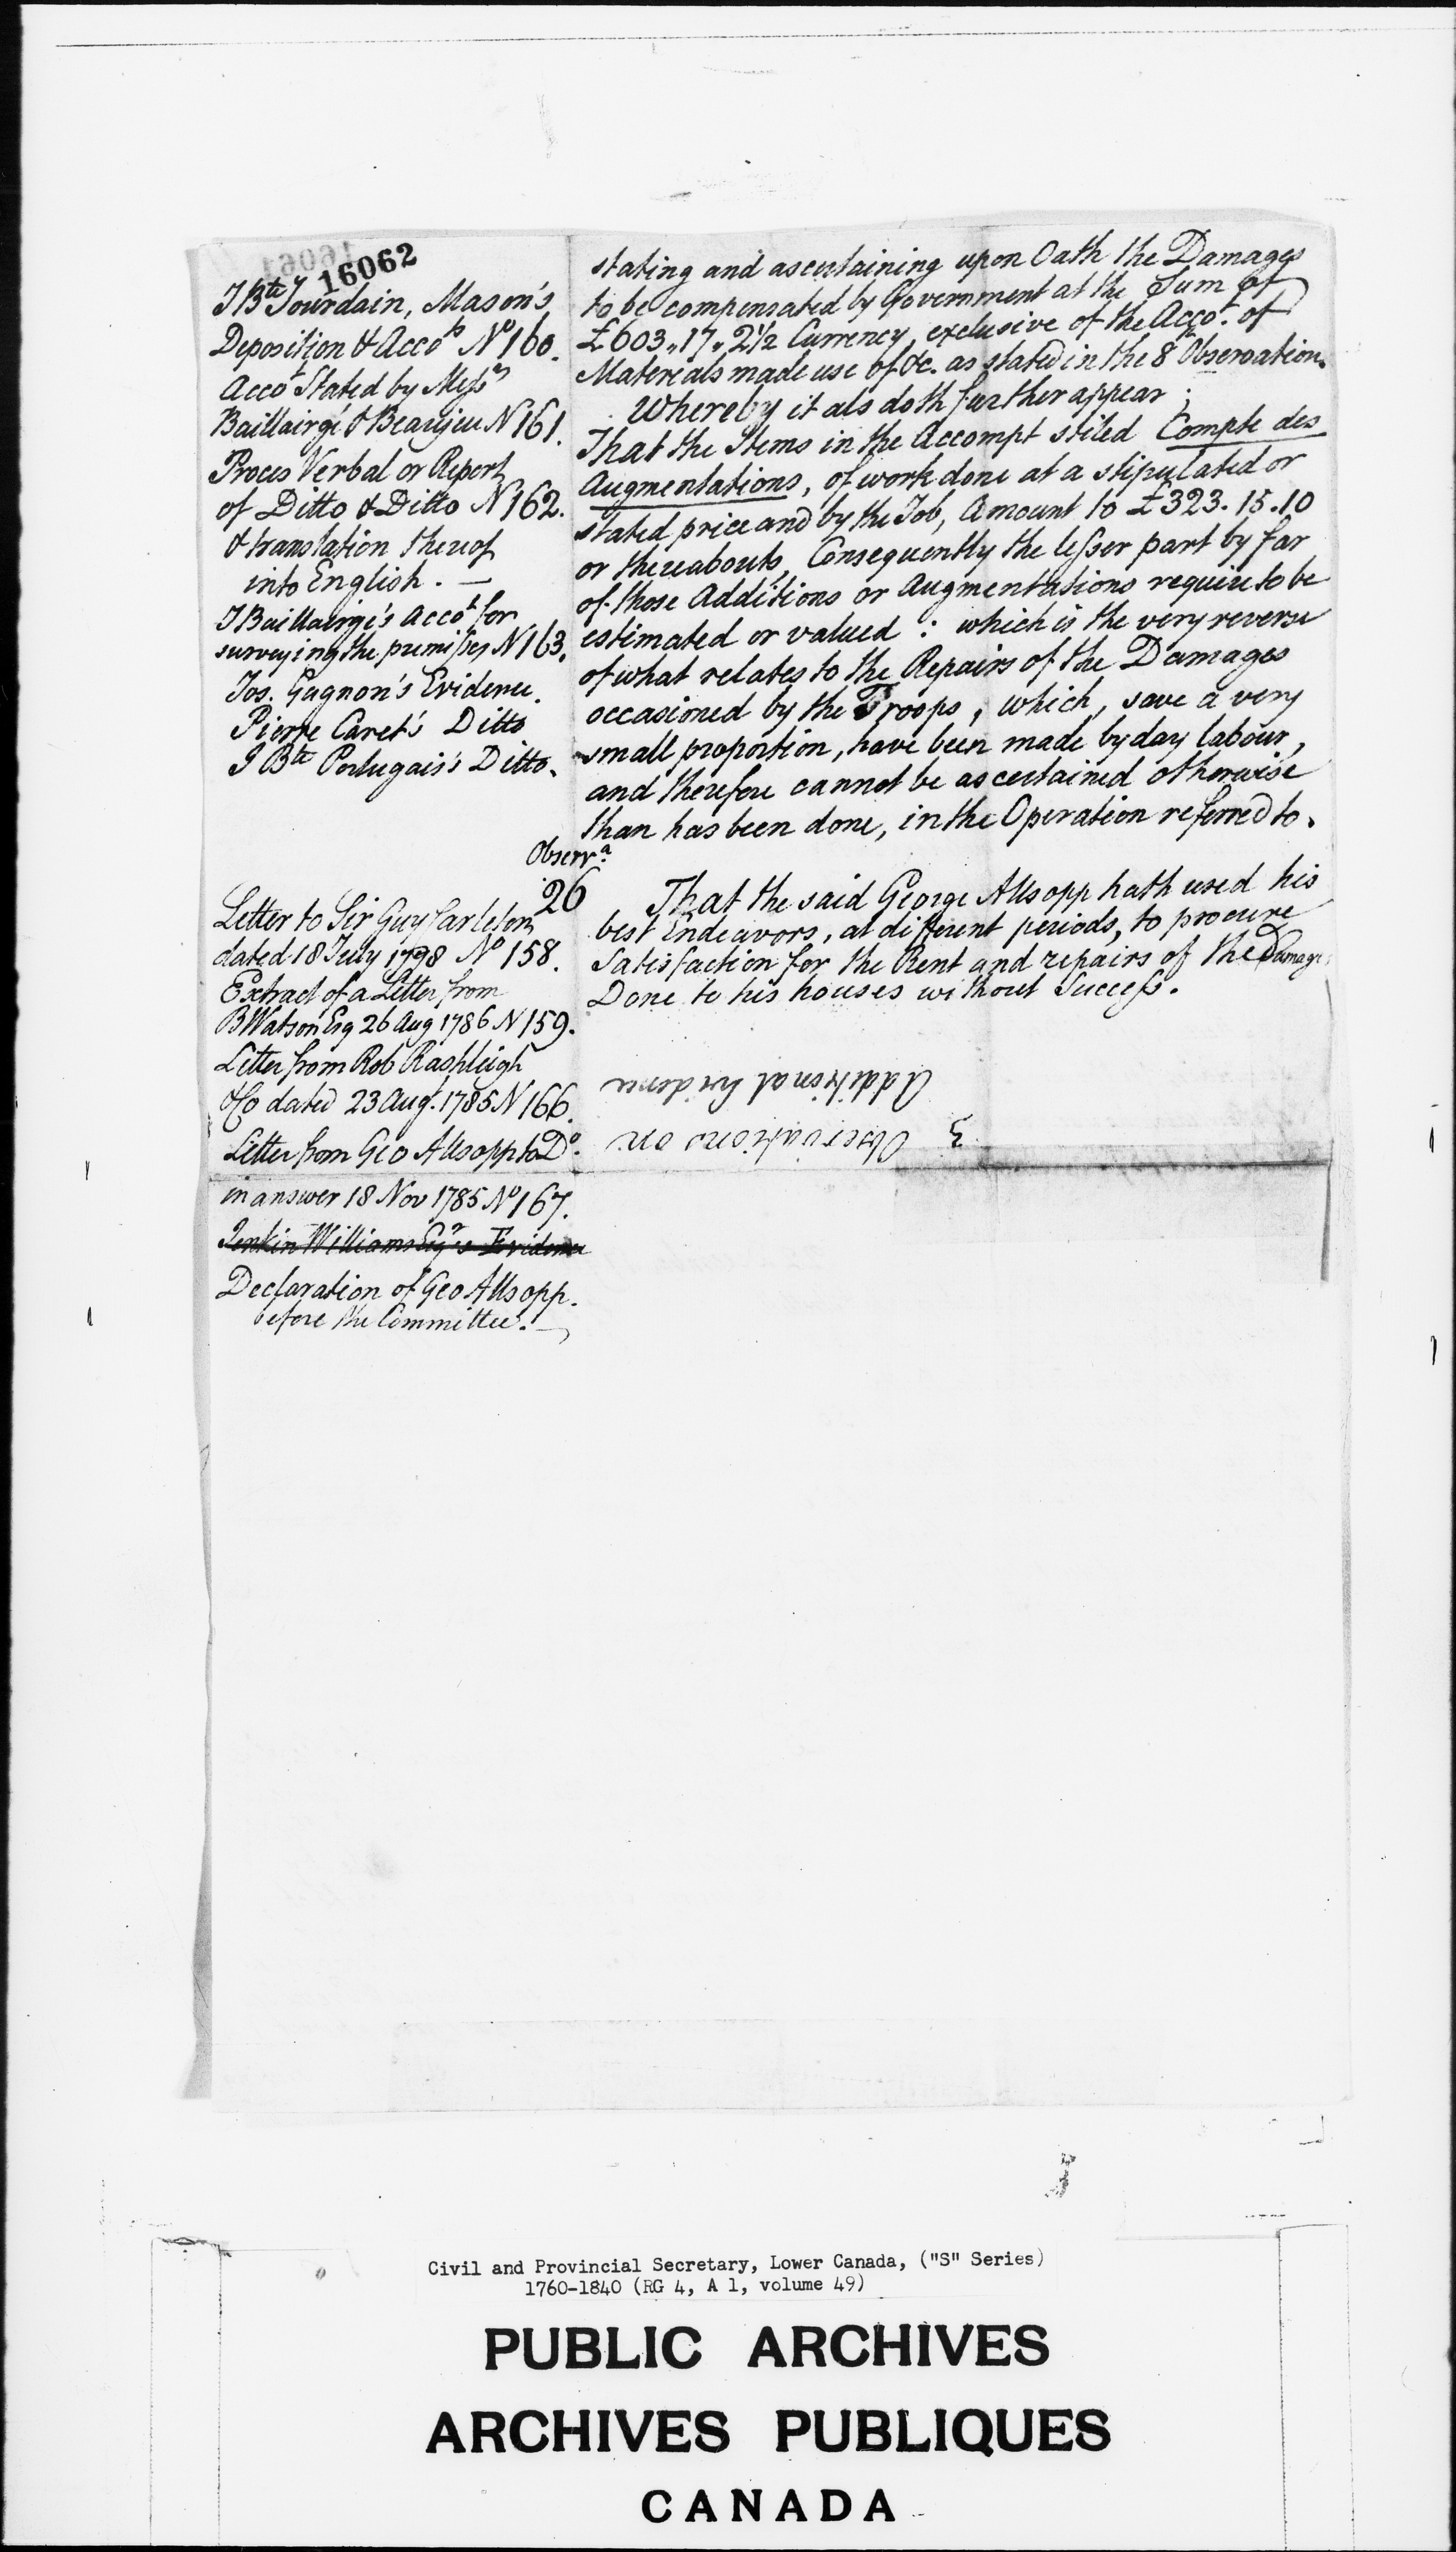 16062
J Bte Jourdain, Mason's
Deposition & Accots No 160.
Accot Stated by Messrs
Baillairgé & Beaujeu N 161.
Proces Verbal or Report
of Ditto & Ditto N 162.
& translation thereof
into English. —
J Baillairgé's Accot for
surveying the premisses N 163.
Jos. Gagnon's Evidence.
Pierre Caret's Ditto
J Bte Portugais's Ditto.
stating and ascertaining upon Oath the Damages
to be compensated by Government at the Sum of
£603„17„2½ Currency, exclusive of the Accot. of
Materials made use of &c. as stated in the 8 Observation.
Whereby it als doth further appear;
That the Items in the Accompt stiled Compte des
Augmentations, of work done at a stipulated or
stated price and by the Job, Amount to £323.15.10
or thereabouts, Consequently the lesser part by far
of those Additions or Augmentations require to be
estimated or valued: which is the very reverse
of what relates to the Repairs of the Damages
occasioned by the Troops, which, save a very
small proportion, have been made by day labour,
and therefore cannot be ascertained otherwise
than has been done, in the Operation referred to.
Observn
26
Letter to Sir Guy Carleton
dated 18 July 1778 No 158.
Extract of a Letter from
B Watson Esq 26 Aug 1786 N 159.
Letter from Rob Rashleigh
& Co dated 23 Augt. 1785 N 166.
Letter from Geo Allsopp to Do.
in answer 18 Nov 1785 No 167.
Jenkin Williams Esqr's Evidence
Declaration of Geo Allsopp.
before the Committee. —
That the said George Allsopp hath used his
best Endeavors, at different periods, to procure
Satisfaction for the Rent and repairs of the Damages
Done to his houses without Success.
3 Observations on
Additional Evidence
Civil and Provincial Secretary, Lower Canada, ("S" Series)
1760-1840 (RG 4, A 1, volume 49)
PUBLIC ARCHIVES
ARCHIVES PUBLIQUES
CANADA